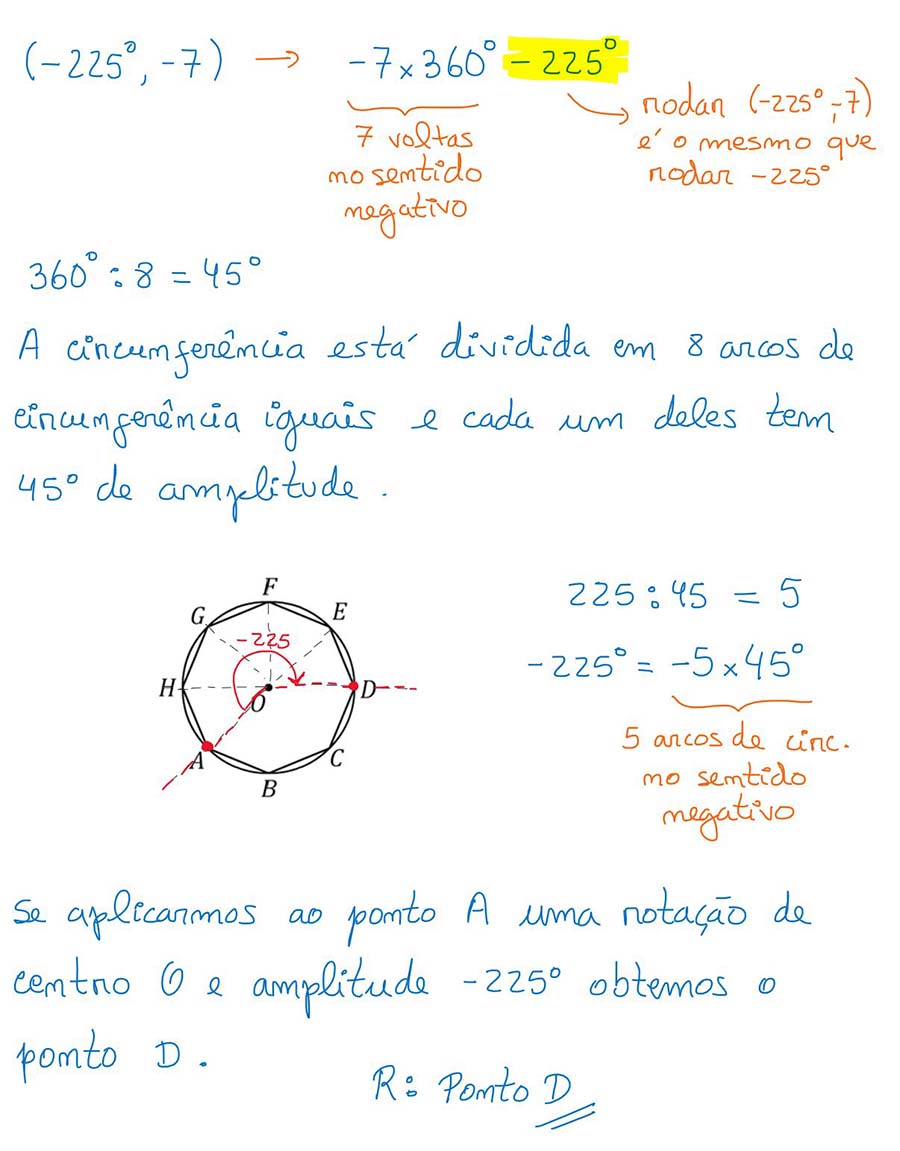 (-225°, -7) → -7 x 360° - 225°
7 voltas
no sentido
negativo
rodar (-225°, -7)
é o mesmo que
rodar -225°
360° : 8 = 45°
A circunferência está dividida em 8 arcos de
circunferência iguais e cada um deles tem
45° de amplitude.
F
G
E
-225
H
O
D
A
C
B
225 : 45 = 5
-225° = -5 x 45°
5 arcos de circ.
no sentido
negativo
Se aplicarmos ao ponto A uma rotação de
centro O e amplitude -225° obtemos o
ponto D.
R: Ponto D